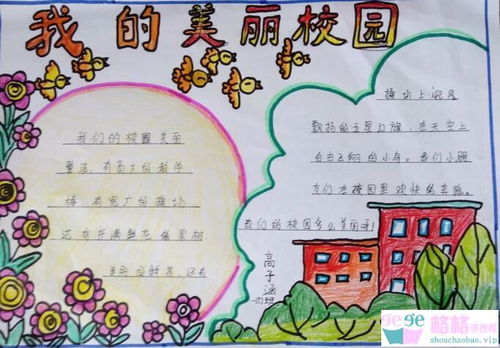 我的美丽校园
我们的校园美丽
整洁,有高大的教学
楼,有宽广的操场
还有开满鲜花的
美丽的鲜花,还有
操场上
飘扬的五星红旗,在天空上
自由飞翔的小鸟。我们小朋
友们在校园里欢快的
我们的校园多么美丽呀!
高子涵
格格手抄报
shouchaobao.vip